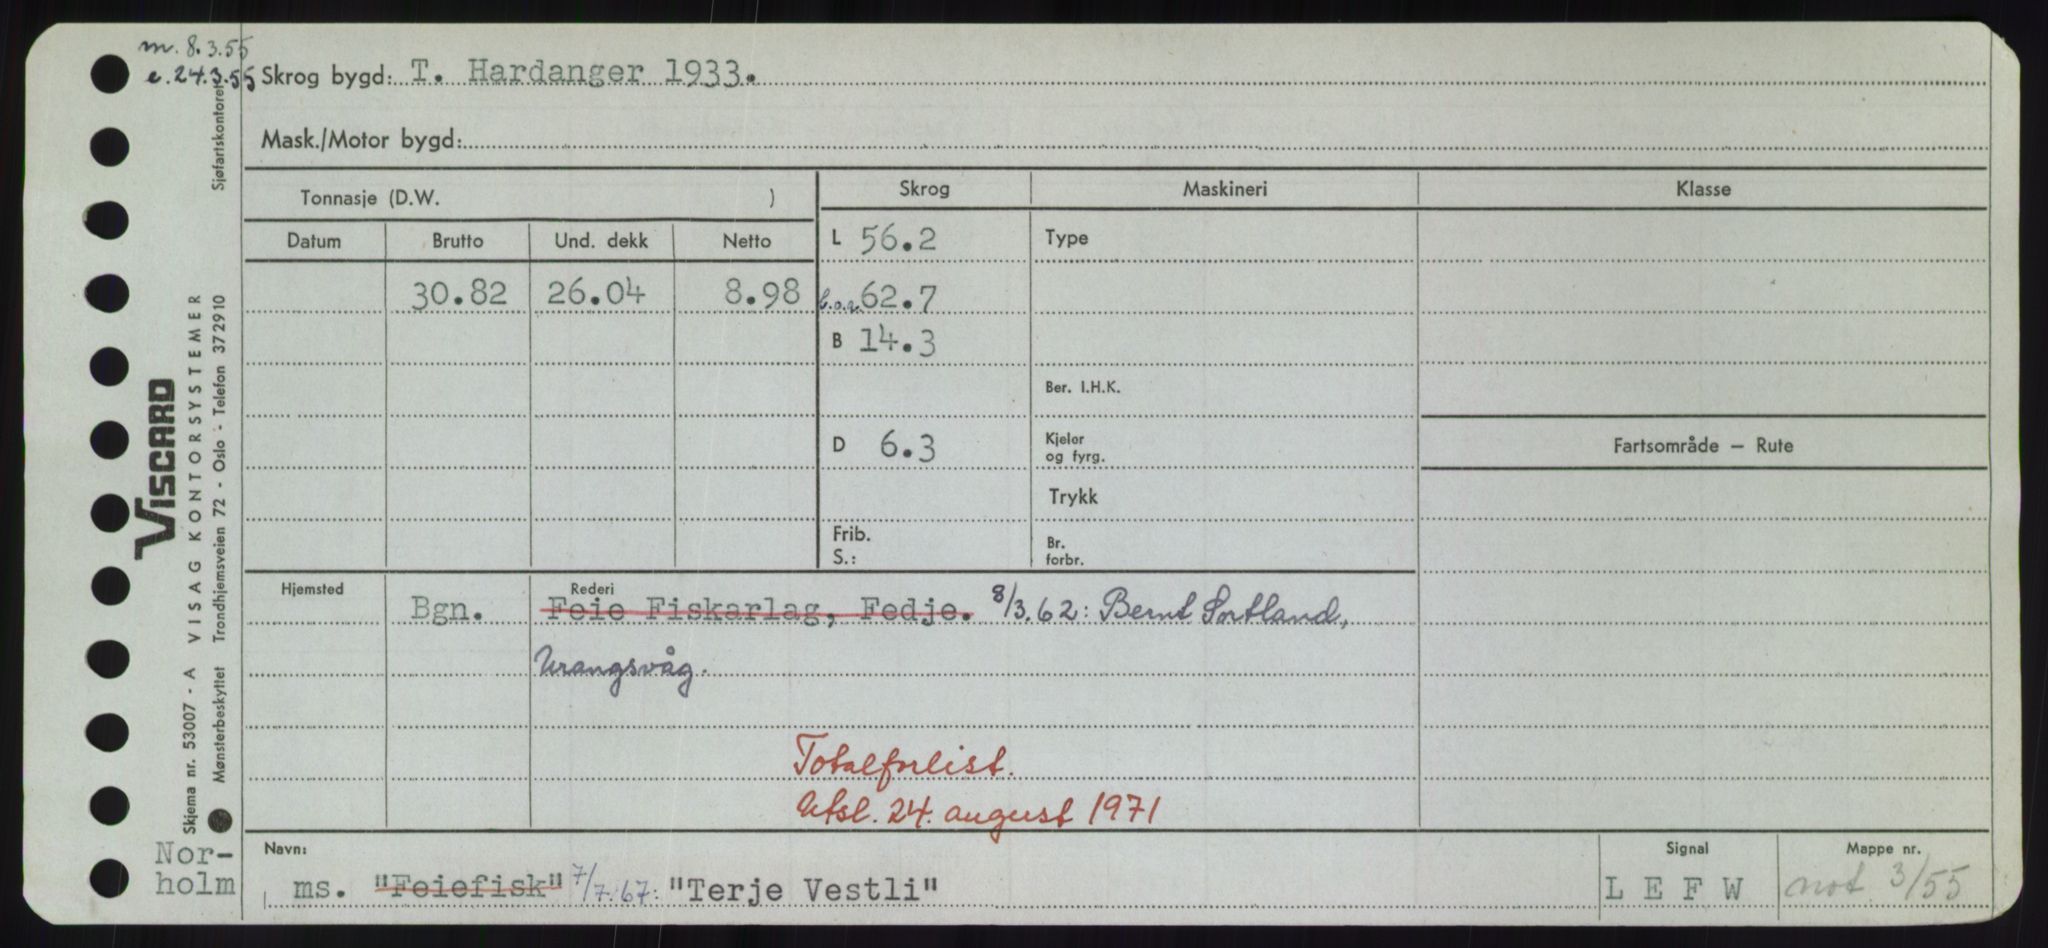 m. 8.3.55
e. 24.3.55
Skrog bygd: T. Hardanger 1933.
Mask./Motor bygd:
Tonnasje (D.W. )
Skrog
Maskineri
Klasse
Datum Brutto Und. dekk Netto
L 56.2
Type
30.82 26.04 8.98
l.o.a. 62.7
B 14.3
Ber. I.H.K.
D 6.3
Kjeler
og fyrg.
Fartsområde — Rute
Trykk
Frib.
S.:
Br.
forbr.
Hjemsted
Rederi
Bgn. Feie Fiskarlag, Fedje. 8/3.62: Bernt Sortland,
Urangsvåg.
Totalforlist.
Utsl. 24. august 1971
Navn:
Signal
Mappe nr.
ms. "Feiefisk" 7/7.67: "Terje Vestli"
L E F W
not 3/55
Nor-
holm
VISCARD
Skjema nr. 53007 - A VISAG KONTORSYSTEMER
Mønsterbeskyttet Trondhjemsveien 72 - Oslo - Telefon 372910
Sjøfartskontoret